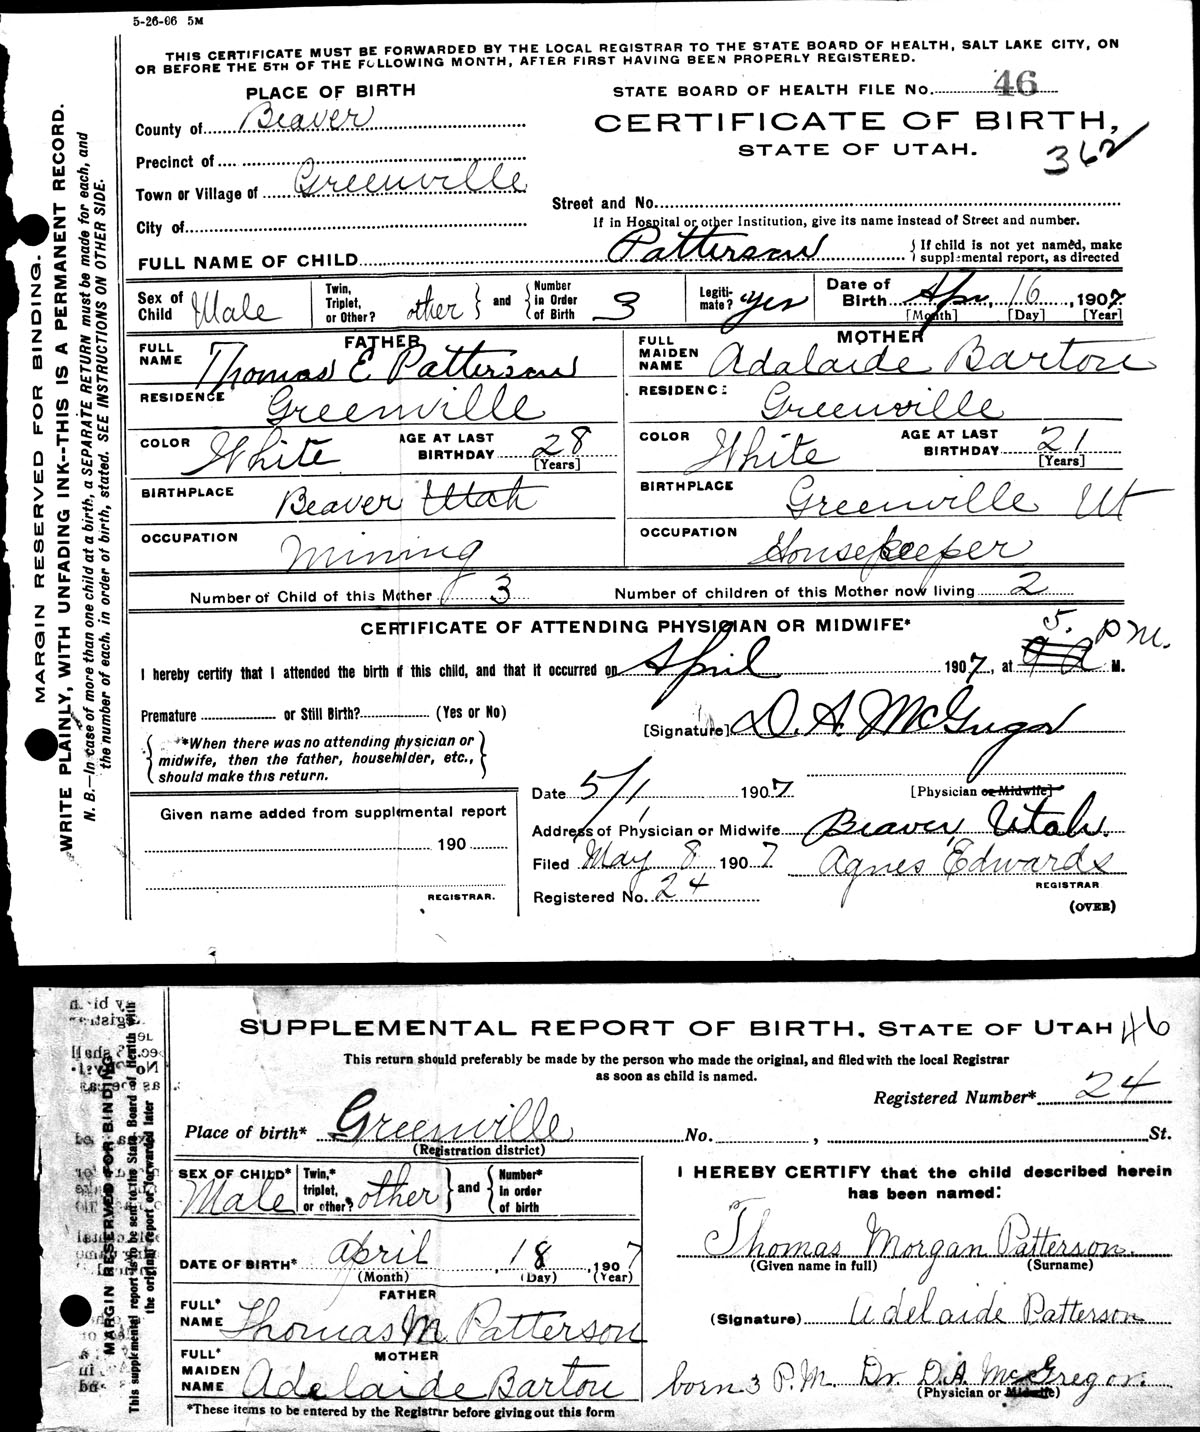 5-26-06 5M
THIS CERTIFICATE MUST BE FORWARDED BY THE LOCAL REGISTRAR TO THE STATE BOARD OF HEALTH, SALT LAKE CITY, ON
OR BEFORE THE 5TH OF THE FOLLOWING MONTH, AFTER FIRST HAVING BEEN PROPERLY REGISTERED.
MARGIN RESERVED FOR BINDING.
WRITE PLAINLY, WITH UNFADING INK--THIS IS A PERMANENT RECORD.
N. B.—In case of more than one child at a birth, a SEPARATE RETURN must be made for each, and
the number of each, in order of birth, stated. SEE INSTRUCTIONS ON OTHER SIDE.
PLACE OF BIRTH
County of Beaver
Precinct of
Town or Village of Greenville
City of
STATE BOARD OF HEALTH FILE No. 46
CERTIFICATE OF BIRTH,
STATE OF UTAH.
362
Street and No.
If in Hospital or other Institution, give its name instead of Street and number.
FULL NAME OF CHILD Patterson { If child is not yet named, make
supplemental report, as directed
Sex of Child Male Twin, Triplet, or Other? other } and { Number in Order of Birth 3 Legiti- mate? yes Date of Birth Apr, 16, 1907
[Month] [Day] [Year]
FATHER
FULL NAME Thomas E Patterson
RESIDENCE Greenville
COLOR White AGE AT LAST BIRTHDAY 28
[Years]
BIRTHPLACE Beaver Utah
OCCUPATION Mining
MOTHER
FULL MAIDEN NAME Adalaide Barton
RESIDENCE: Greenville
COLOR White AGE AT LAST BIRTHDAY 21
[Years]
BIRTHPLACE Greenville Ut
OCCUPATION Housekeeper
Number of Child of this Mother 3 Number of children of this Mother now living 2
CERTIFICATE OF ATTENDING PHYSICIAN OR MIDWIFE*
I hereby certify that I attended the birth of this child, and that it occurred on April 1907, at 5. P M. M.
Premature or Still Birth? (Yes or No)
{ *When there was no attending physician or
midwife, then the father, householder, etc.,
should make this return. }
[Signature] D. A. McGregor
[Physician or Midwife]
Date 5/1, 1907
Address of Physician or Midwife Beaver, Utah.
Filed May 8 1907 Agnes Edwards
REGISTRAR
Registered No. 24
(OVER)
Given name added from supplemental report
190
REGISTRAR.
SUPPLEMENTAL REPORT OF BIRTH, STATE OF UTAH 46
This return should preferably be made by the person who made the original, and filed with the local Registrar
as soon as child is named.
MARGIN RESERVED FOR BINDING
This supplemental report is to be sent to the State Board of Health with
the original report or forwarded later
Registered Number* 24
Place of birth* Greenville No. , St.
(Registration district)
SEX OF CHILD* Male Twin,* triplet, or other? other } and { Number* in order of birth
DATE OF BIRTH* April, 18, 1907
(Month) (Day) (Year)
FATHER
FULL* NAME Thomas M. Patterson
MOTHER
FULL* MAIDEN NAME Adelaide Barton
*These items to be entered by the Registrar before giving out this form
I HEREBY CERTIFY that the child described herein
has been named:
Thomas Morgan Patterson.
(Given name in full) (Surname)
(Signature) Adelaide Patterson
born 3 P.M. Dr. D.A. McGregor.
(Physician or Midwife)